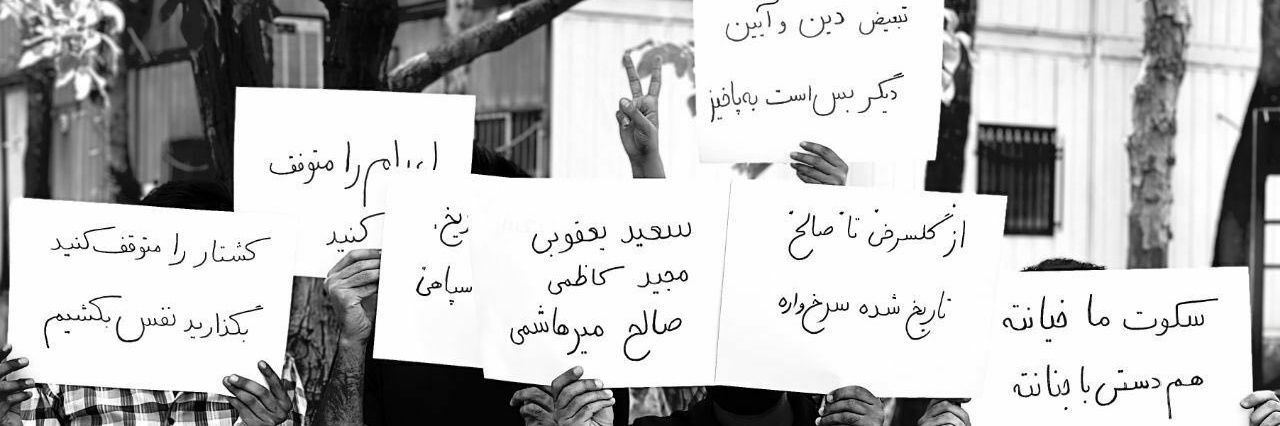 تبعیض دین و آیین
دیگر بس است به‌پاخیز
را متوقف
کنید
کشتار را متوقف کنید
بگذارید نفس بکشیم
سعید یعقوبی
مجید کاظمی
صالح میرهاشمی
از گلسرخی تا صالح
تاریخ شده سرخ‌واره
سکوت ما خیانته
هم دستی با جنانته